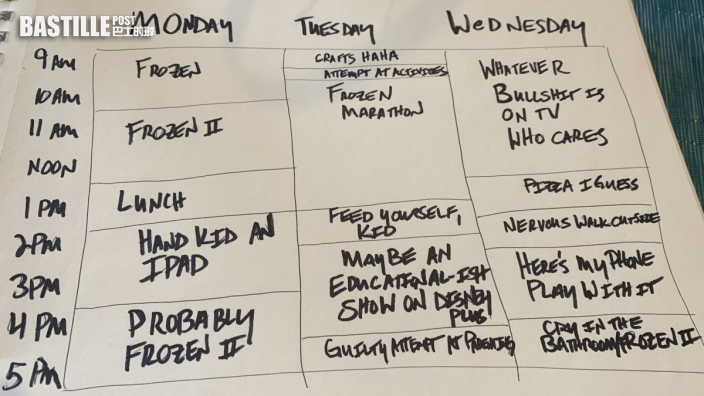 BASTILLE POST
巴士的報
MONDAY
TUESDAY
WEDNESDAY
9 AM
10 AM
11 AM
NOON
1 PM
2 PM
3 PM
4 PM
5 PM
FROZEN
FROZEN II
LUNCH
HAND KID AN
IPAD
PROBABLY
FROZEN II
CRAFTS HAHA
ATTEMPT AT ACTIVITIES
FROZEN
MARATHON
FEED YOURSELF,
KID
MAYBE AN
EDUCATIONAL-ISH
SHOW ON DISNEY
PLUS
GUILTY ATTEMPT AT PARENTING
WHATEVER
BULLSHIT IS
ON TV
WHO CARES
PIZZA I GUESS
NERVOUS WALK OUTSIDE
HERE'S MY PHONE
PLAY WITH IT
CRY IN THE
BATHROOM/FROZEN II